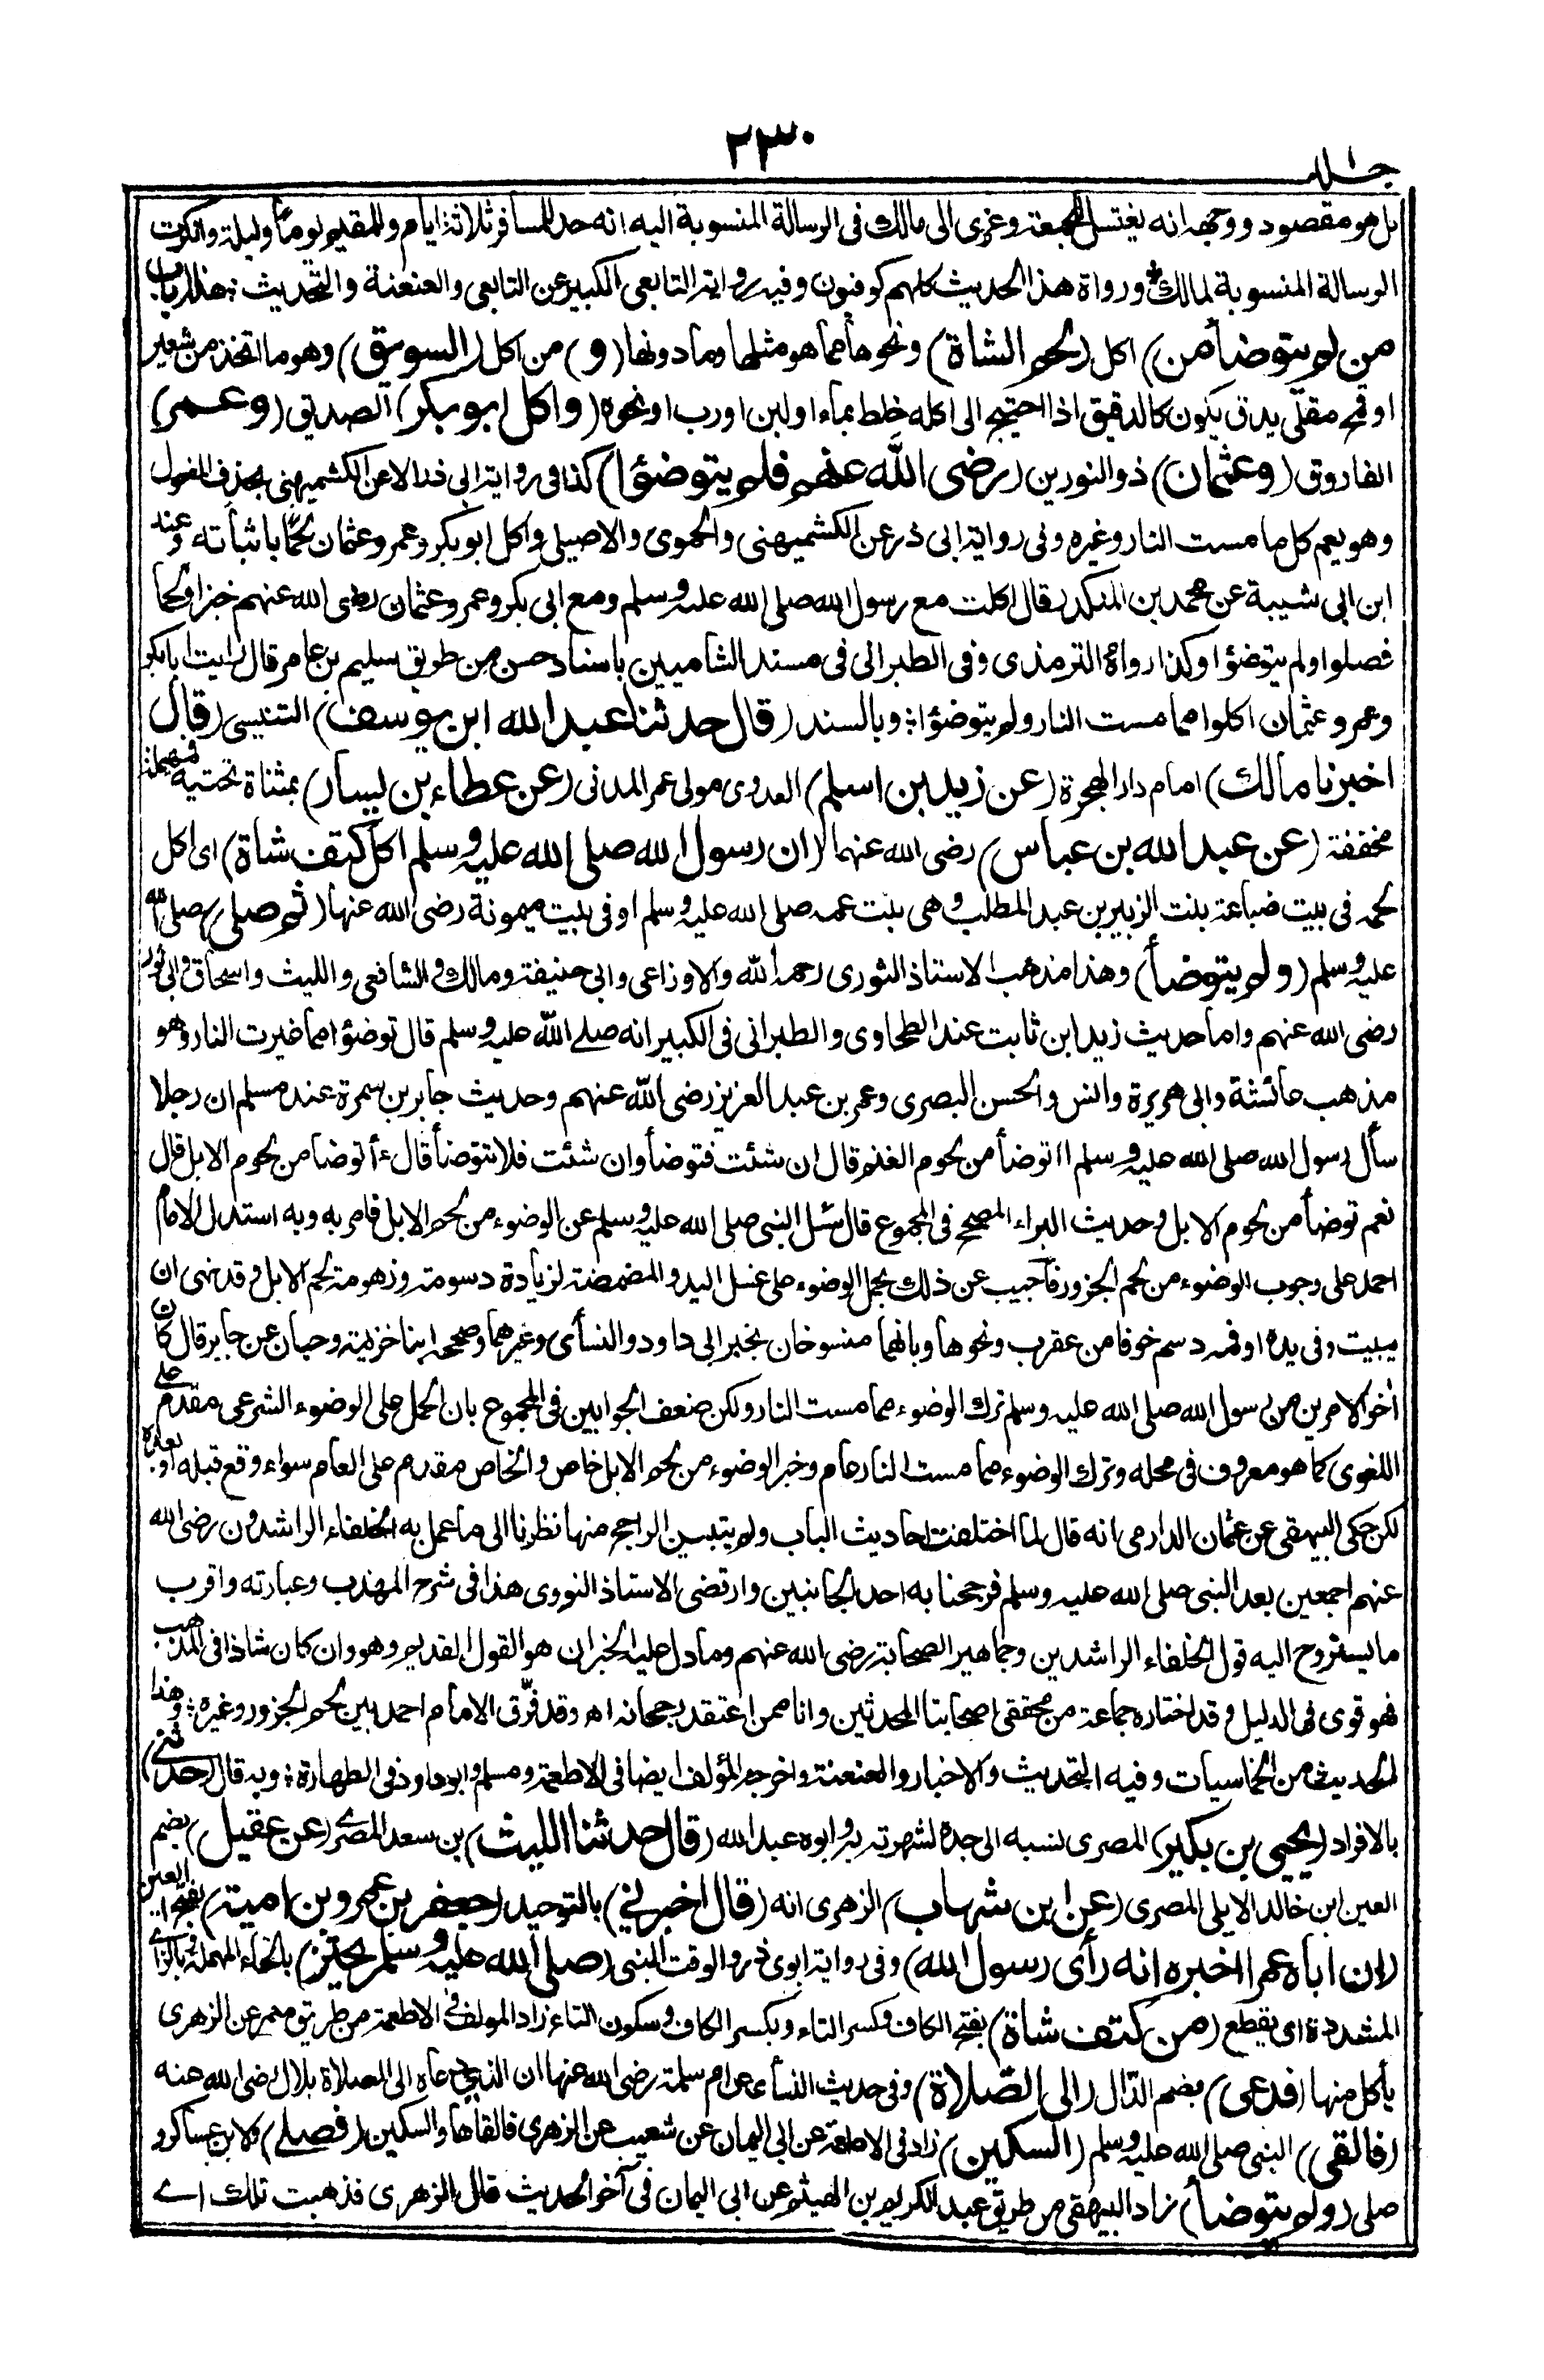 ٢٣٠
جلد ١
بل هو مقصود ووجهه انه يغتسل للجمعة وعزى الى مالك فى الرسالة المنسوبة اليه انه حد للمسافر ثلاثة ايام وللمقيم يوماً وليلة وانكرت
الرسالة المنسوبة لمالك ورواة هذا الحديث كلهم كوفيون وفيه رواية التابعى الكبير عن التابعى والعنعنة والتحديث ؛ هذا (باب
من لم يتوضأ من) اكل (لحم الشاة) ونحوها مما هو مثلها وما دونها (و) من اكل (السويق) وهو ما اتخذ من شعير
او قمح مقلّى يدق يكون كالدقيق اذا احتيج الى اكله خلط بماء او لبن او رب او نحوه (واكل ابو بكر) الصديق (وعمر)
الفاروق (وعثمان) ذو النورين (رضى اللّٰه عنهم فلم يتوضؤا) كذا فى رواية ابى ذر الا عن الكشميهنى بحذف المفعول
وهو يعم كل ما مست النار وغيره وفى رواية ابى ذر عن الكشميهنى والحموى والاصيلى واكل ابو بكر وعمر وعثمان لحمًا باثباته وعند
ابن ابى شيبة عن محمد بن المنكدر قال اكلت مع رسول الله صلى الله عليه وسلم ومع ابى بكر وعمر وعثمان رضى الله عنهم خبزا ولحما
فصلوا ولم يتوضؤا وكذا رواه الترمذى وفى الطبرانى فى مسند الشاميين باسناد حسن من طريق سليم بن عامر قال رايت ابا بكر
وعمر وعثمان اكلوا مما مست النار ولم يتوضؤا ؛ وبالسند (قال حدثنا عبد الله ابن يوسف) التنيسى (قال
اخبرنا مالك) امام دار الهجرة (عن زيد بن اسلم) العدوى مولى عمر المدنى (عن عطاء بن يسار) بمثناة تحتية فمهملة
مخففة (عن عبد الله بن عباس) رضى الله عنهما (ان رسول الله صلى الله عليه وسلم اكل كتف شاة) اى اكل
لحمه فى بيت ضباعة بنت الزبير بن عبد المطلب وهى بنت عمه صلى الله عليه وسلم او فى بيت ميمونة رضى الله عنها (ثم صلى) صلى الله
عليه وسلم (ولم يتوضأ) وهذا مذهب الاستاذ الثورى رحمه الله والاوزاعى وابى حنيفة ومالك والشافعى والليث واسحاق وابى ثور
رضى الله عنهم واما حديث زيد ابن ثابت عند الطحاوى والطبرانى فى الكبير انه صلے اللّٰه عليه وسلم قال توضؤا مما غيرت النار وهو
مذهب عائشة وابى هريرة وانس والحسن البصرى وعمر بن عبد العزيز رضى اللّٰه عنهم وحديث جابر بن سمرة عند مسلم ان رجلا
سأل رسول الله صلى الله عليه وسلم ااتوضأ من لحوم الغنم قال ان شئت فتوضأ وان شئت فلا تتوضأ قال ءأتوضأ من لحوم الابل قال
نعم توضأ من لحوم الابل وحديث البراء المصحح فى المجموع قال سئل النبى صلى الله عليه وسلم عن الوضوء من لحم الابل فامر به وبه استدل الامام
احمد على وجوب الوضوء من لحم الجزور فأجيب عن ذلك بحمل الوضوء على غسل اليد والمضمضة لزيادة دسومة وزهومة لحم الابل وقد نهى ان
يبيت وفى يده او فمه دسم خوفا من عقرب ونحوها وبانهما منسوخان بخبر ابى داود والنسأى وغيرهما وصححه ابنا خزيمة وحبان عن جابر قال كان
أخر الامرين من رسول الله صلى الله عليه وسلم ترك الوضوء مما مست النار ولكن ضعف الجوابين فى المجموع بان الحمل على الوضوء الشرعى مقدم على
اللغوى كما هو معروف فى محله وترك الوضوء مما مست النار عام وخبر الوضوء من لحم الابل خاص والخاص مقدم على العام سواء وقع قبله او بعده
لكن حكى البيهقى عن عثمان الدارمى انه قال لما اختلفت احاديث الباب ولم يتبين الراجح منها نظرنا الى ما عمل به الخلفاء الراشدون رضى الله
عنهم اجمعين بعد النبى صلى الله عليه وسلم فرجحنا به احد الجانبين وارتضى الاستاذ النووى هذا فى شرح المهذب وعبارته واقرب
ما يستروح اليه قول الخلفاء الراشدين وجماهير الصحابة رضى الله عنهم وما دل عليه الخبران هو القول القديم وهو وان كان شاذا فى المذهب
فهو قوى فى الدليل وقد اختاره جماعة من محققى اصحابنا المحدثين وانا ممن اعتقد رجحانه اه وقد فرّق الامام احمد بين لحم الجزور وغيره ؛ وهذا
الحديث من الخماسيات وفيه التحديث والاخبار والعنعنة واخرجه المؤلف ايضا فى الاطعمة ومسلم وابو داود فى الطهارة ؛ وبه قال (حدثنى)
بالافراد (يحيى بن بكير) المصرى نسبه الى جده لشهرته به وابوه عبد الله (قال حدثنا الليث) بن سعد المصرے (عن عقيل) بضم
العين ابن خالد الايلى المصرى (عن ابن شهاب) الزهرى انه (قال اخبرنى) بالتوحيد (جعفر بن عمرو بن امية) بفتح العين
(ان اباه عمرا اخبره انه رأى رسول الله) وفى رواية ابوى ذر والوقت النبى (صلى الله عليه وسلم يحتز) بالحاء المهملة وبالزاے
المشددة اى يقطع (من كتف شاة) بفتح الكاف وكسر التاء وبكسر الكاف وسكون التاء زاد المولف فى الاطعمة من طريق معمر عن الزهرى
يأكل منها (فدعى) بضم الدّال (الى الصّلاة) وفى حديث النسأى عن ام سلمة رضى الله عنها ان الذى دعاه الى الصلاة بلال رضى الله عنه
(فالقى) النبى صلى الله عليه وسلم (السكين) زاد فى الاطعمة عن ابى اليمان عن شعيب عن الزهرى فالقاها والسكين (فصلے) ولابن عساكر و
صلى (ولم يتوضأ) زاد البيهقى من طريق عبد الكريم بن الهيثم عن ابى اليمان فى آخر الحديث قال الزهرى فذهبت تلك اے